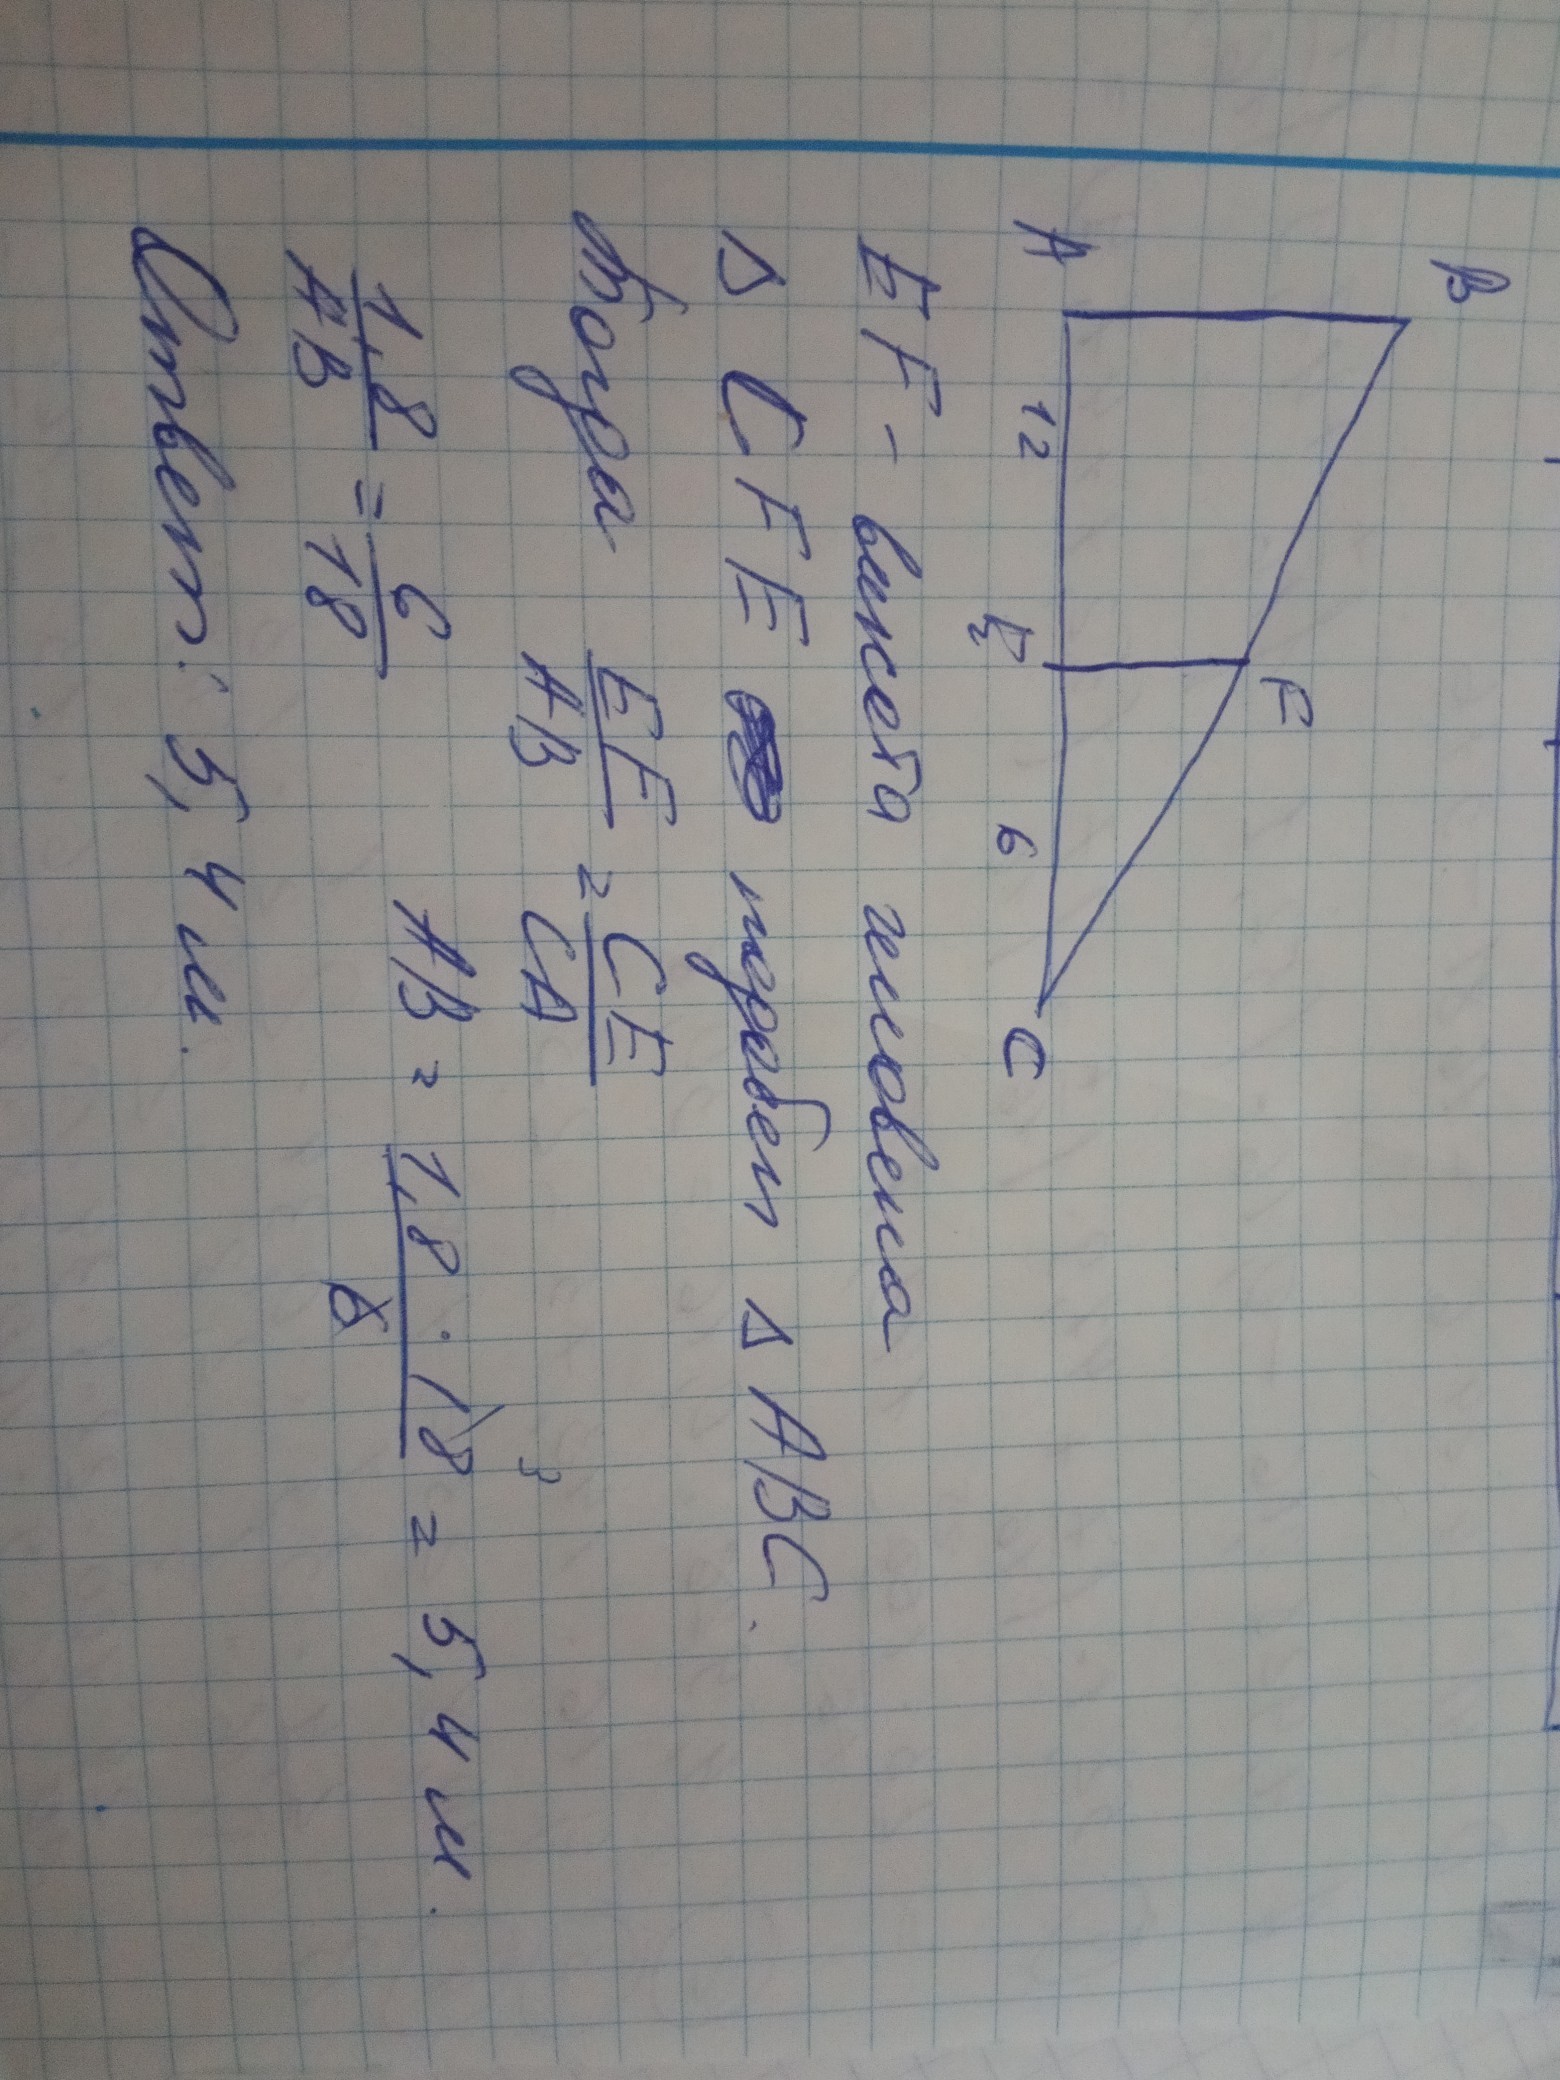 B
F
A 12 E 6 C
EF - высота человека
Δ CFE подобен Δ ABC.
Тогда EF/AB = CE/CA
1,8/AB = 6/18 AB = 1,8 · 18/6 3 = 5,4 м.
Ответ: 5,4 м.